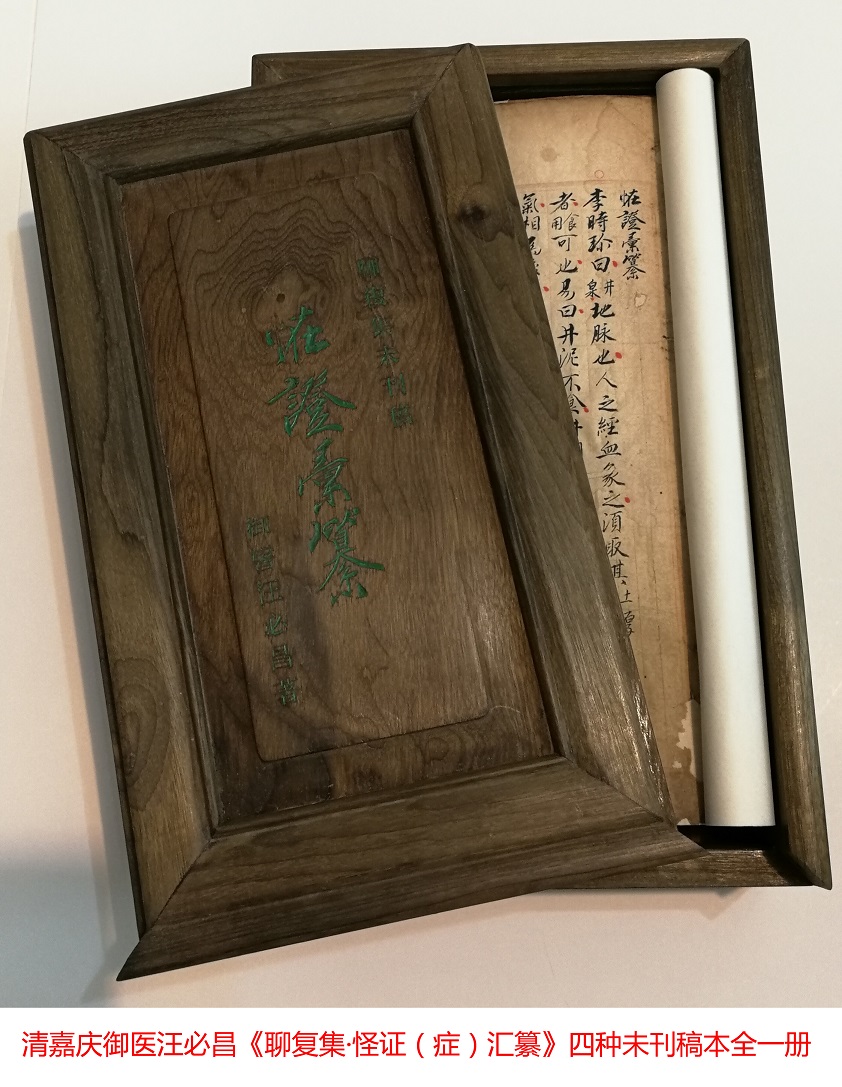 聊復集未刊稿
恠證彙纂
御醫汪必昌著
恠證彙纂
李時珍曰井泉地脉也人之經血象之須取其土厚
者食用可也易曰井泥不食井
氣相為
清嘉庆御医汪必昌《聊复集·怪证（症）汇纂》四种未刊稿本全一册